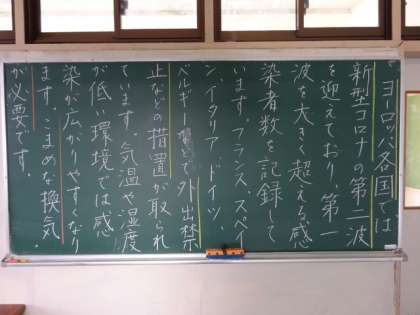 。ヨーロッパ各国では
新型コロナの第二波
を迎えており、第一
波を大きく超える感
染者数を記録して
います。フランス、スペイ
ン、イタリア、ドイツ、
ベルギーなどで外出禁
止などの措置が取られ
ています。気温や湿度
が低い環境では感
染が広がりやすくなり
ます。こまめな換気
が必要です。